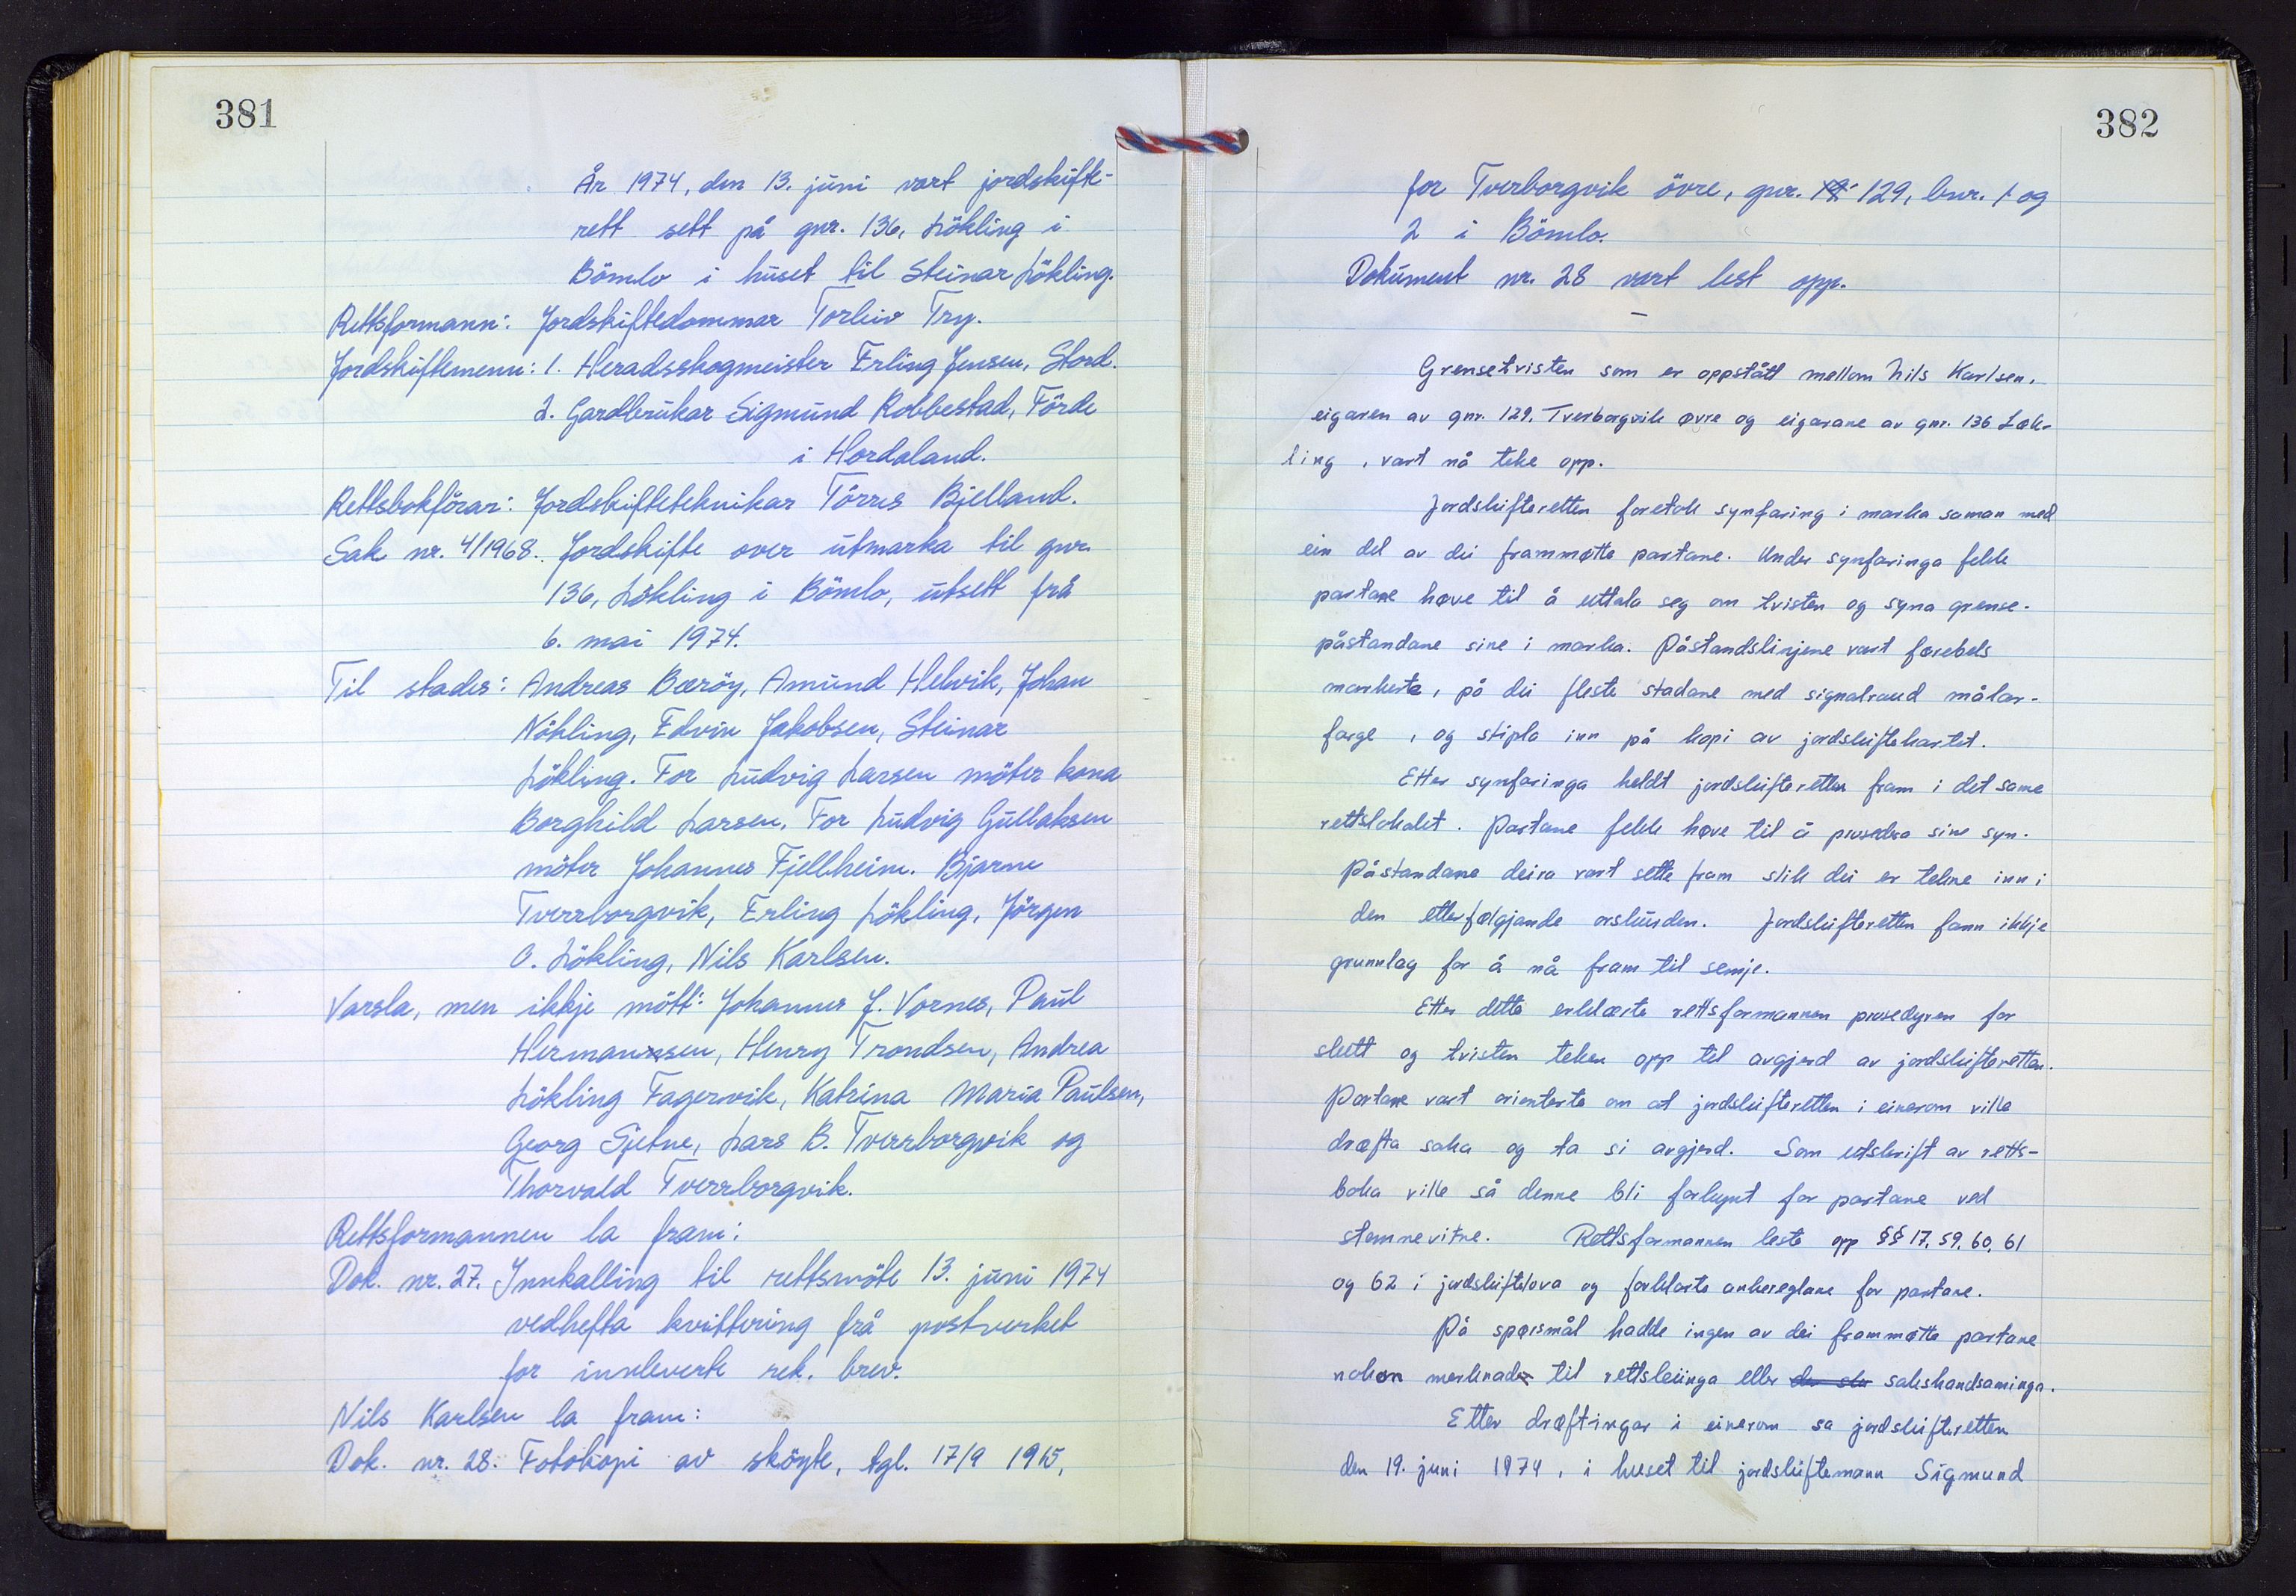 381
År 1974, den 13. juni vart jordskifte-
rett sett på gnr. 136, Lökling i
Bömlo i huset til Steinar Lökling.
Rettsformann: Jordskiftedommar Torleiv Try.
Jordskiftemenn: 1. Heradsskogmeister Erling Jensen, Stord.
2. Gardbrukar Sigmund Robbestad, Förde
i Hordaland.
Rettsbokförar: Jordskifteteknikar Törres Bjelland.
Sak nr. 4/1968. Jordskifte over utmarka til gnr.
136, Lökling i Bömlo, utsett frå
6. mai 1974.
Til stades: Andreas Bæröy, Amund Helvik, Johan
Nökling, Edvin Jakobsen, Steinar
Lökling. For Ludvig Larsen möter kona
Borghild Larsen. For Ludvig Gullaksen
möter Johannes Fjellheim. Bjarne
Tverrborgvik, Erling Lökling, Jörgen
O. Lökling, Nils Karlsen.
Varsla, men ikkje mött: Johannes J. Vornes, Paul
Hermansen, Henry Trondsen, Andrea
Lökling Fagervik, Katrina Maria Paulsen,
Georg Sjetne, Lars B. Tverrborgvik og
Thorvald Tverrborgvik.
Rettsformannen la fram:
Dok. nr. 27. Innkalling til rettsmöte 13. juni 1974
vedhefta kvittering frå postverket
for innleverte rek. brev.
Nils Karlsen la fram:
Dok. nr. 28. Fotokopi av sköyte, tgl. 17/9 1915,
382
for Tverborgvik övre, gnr. 129, bnr. 1 og
2 i Bömlo.
Dokument nr. 28 vart lest opp.
Grensetvisten som er oppstått mellom Nils Karlsen,
eigaren av gnr. 129, Tverborgvik øvre og eigarane av gnr. 136 Løk-
ling, vart nå teke opp.
Jordskifteretten foretok synfaring i marka saman med
ein del av dei frammøtte partane. Under synfaringa fekk
partane høve til å uttala seg om tvisten og syna grense-
påstandane sine i marka. Påstandslinjene vart førebels
markerte, på dei fleste stadane med signalraud målar-
farge, og stipla inn på kopi av jordskiftekartet.
Etter synfaringa heldt jordskifteretten fram i det same
rettslokalet. Partane fekk høve til å prosedera sine syn.
Påstandane deira vart sette fram slik dei er tekne inn i
den etterfølgjande orskurden. Jordskifteretten fann ikkje
grunnlag for å nå fram til semje.
Etter dette erklærte rettsformannen prosedyren for
slutt og tvisten teken opp til avgjerd av jordskifteretten.
Partane vart orienterte om at jordskifteretten i einerom ville
drøfta saka og ta si avgjerd. Som utskrift av retts-
boka ville så denne bli forkynt for partane ved
stemnevitne. Rettsformannen leste opp §§ 17, 59, 60, 61
og 62 i jordskiftelova og forklarte ankereglane for partane.
På spørsmål hadde ingen av dei frammøtte partane
nokon merknad til rettsleiinga eller sakshandsaminga.
Etter drøftingar i einerom sa jordskifteretten
den 19. juni 1974, i huset til jordskiftemann Sigmund